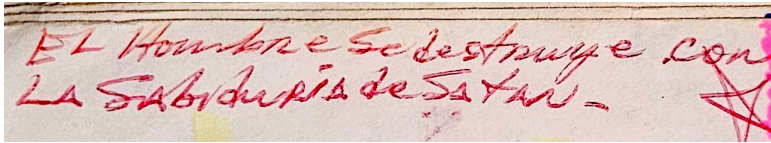 EL Hombre Se destruye con
LA SAbiduRiA de SATAN -